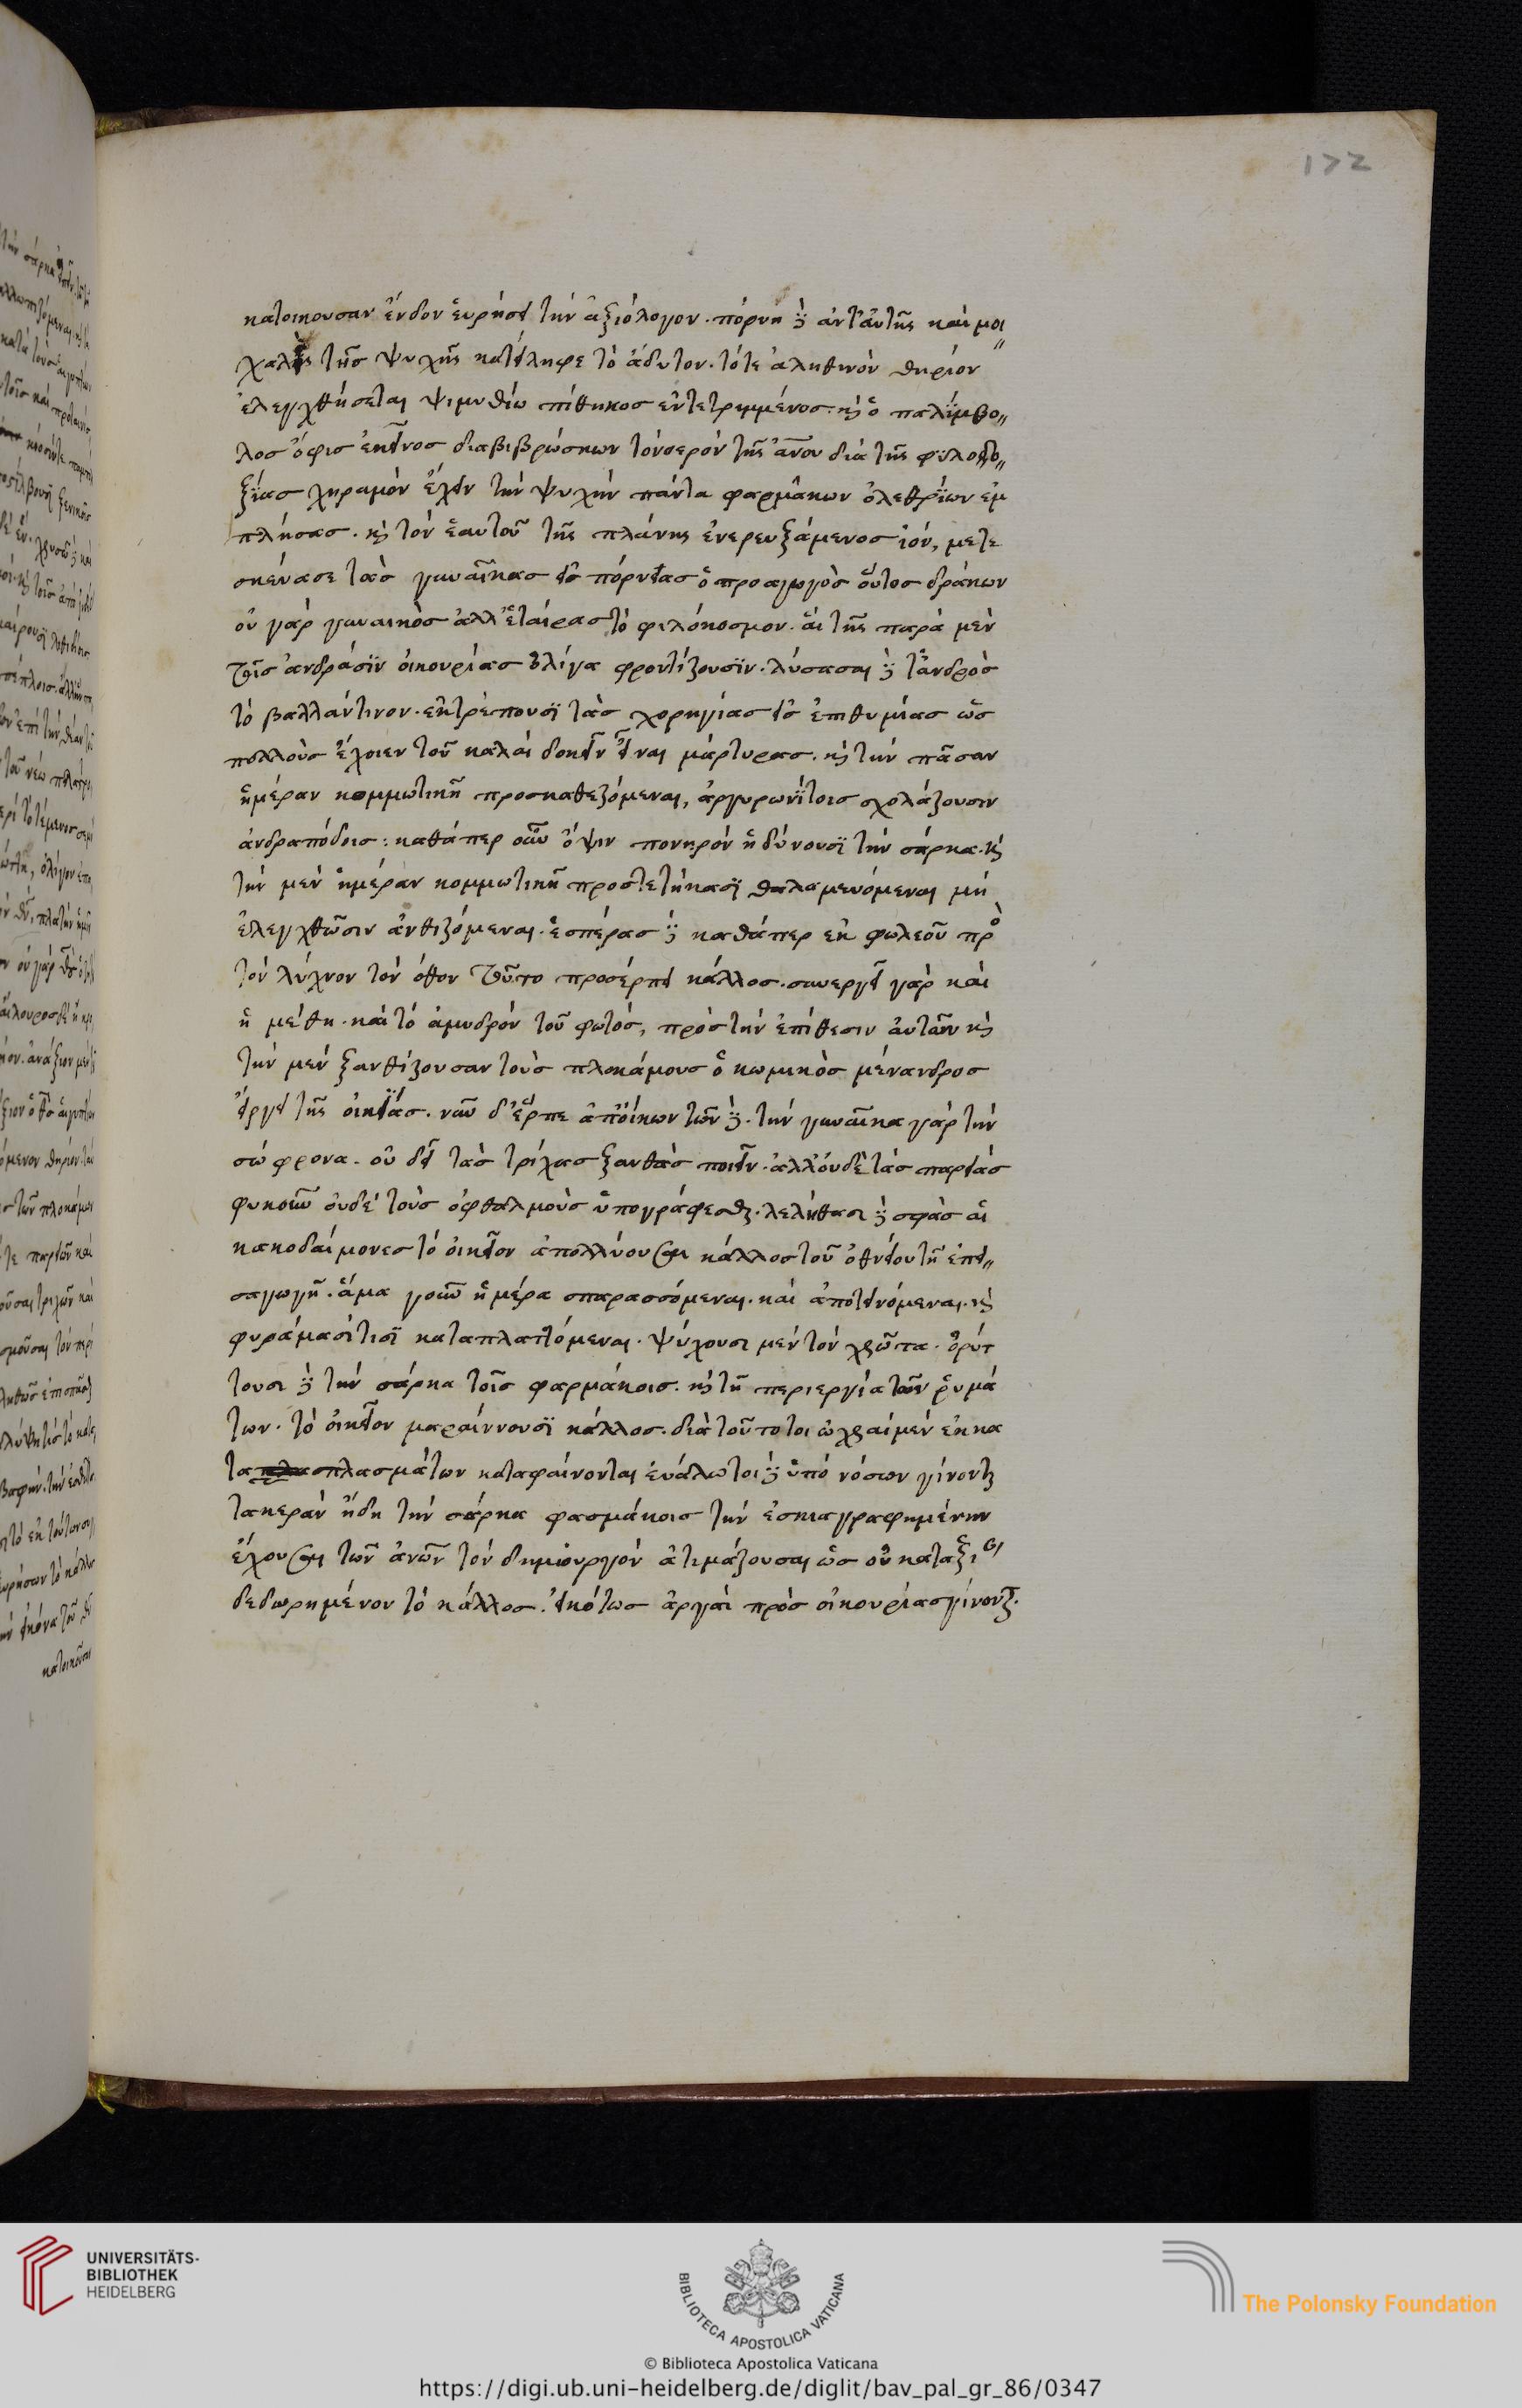 172
κατοικουσαν ἔνδον εὑρήσει τὴν ἀξιόλογον. πόρνη δὲ ἀντ' αὐτῆς καὶ μοι
χαλὶς τῆς ψυχῆς κατείληφε τὸ ἄδυτον. τότε ἀληθινὸν θηρίον
ἐλεγχθήσεται ψιμυθίω πίθηκος ἐντετριμμένος. κ̀ ὁ παλίμβο
λος ὄφις ἐκεῖνος διαβιβρώσκων τὸνοερὸν τῆς ἀνου διὰ τῆς φιλοδο
ξίας χηραμὸν ἔχειν τὴν ψυχὴν πάντα φαρμάκων ὀλεθρίων ἐμ
πλήσας. κ̀ τὸν ἑαυτοῦ τῆς πλάνης ἐνερευξάμενος ἰόν, μετε
σκεύασε τὰς γυναῖκας εἰς πόρνειας ὁ προαγωγὸς οὗτος δράκων
οὐ γὰρ γυναικὸς ἀλλ' ἑταίρας τὸ φιλόκοσμον. αἳ τῆς παρὰ μὲν
τοῖς ἀνδράσιν οἰκουρίας ὀλίγα φροντίζουσιν. λύσασαι δὲ τἀνδρὸς
τὸ βαλλάντινον. ἐκτρέπουσι τὰς χορηγίας εἰς ἐπιθυμίας ὡς
πολλοὺς ἔχοιεν τοῦ καλαὶ δοκεῖν εἶναι μάρτυρας. κ̀ τὴν πᾶσαν
ἡμέραν κομμωτικῆ προσκαθεζόμεναι, ἀργυρωνίτοις σχολάζουσιν
ἀνδραπόδοις: καθάπερ οὖν ὄψιν πονηρὸν ἡδύνουσι τὴν σάρκα. κ̀
τὴν μὲν ἡμέραν κομμωτικῆ προστετήκασι θαλαμευόμεναι μὴ
ἐλεγχθῶσιν ἀνθιζόμεναι. ἑσπέρας δὲ καθάπερ ἐκ φωλεοῦ πρὸ
τὸν λύχνον τὸν ὄθον τοῦτο προσέρπει κάλλος. συνεργεῖ γὰρ καὶ
ἡ μέθη. καὶ τὸ ἀμυδρὸν τοῦ φωτός, πρὸς τὴν ἐπίθεσιν αὐτῶν κ̀
τὴν μὲν ξανθίζουσαν τοὺς πλοκάμους ὁ κωμικὸς μένανδρος
εἴργει τῆς οἰκείας. νῦν δ' ἕρπε ἀπ' οἴκων τῶν δὲ. τὴν γυναῖκα γὰρ τὴν
σώφρονα. οὐ δεῖ τὰς τρίχας ξανθὰς ποιεῖν. ἀλλ' οὐδὲ τὰς παρειὰς
φυκοῦν οὐδὲ τοὺς ὀφθαλμοὺς ὑπογράφεσθαι. λελήθασι δὲ σφὰς αἱ
κακοδαίμονες τὸ οἰκεῖον ἀπολλύουσαι κάλλος τοῦ ὀθνείου τῆ ἐπει
σαγωγῆ. ἅμα γοῦν ἡμέρα σπαρασσόμεναι. καὶ ἀποτεινόμεναι. κ̀
φυράμασί τισι καταπλαττόμεναι. ψύχουσι μὲν τὸν χρῶτα. ὀρύτ
τουσι δὲ τὴν σάρκα τοῖς φαρμάκοις. κ̀ τῆ περιεργία τῶν ῥυμά
των. τὸ οἰκεῖον μαραίννουσι κάλλος. διὰ τοῦτο τοι ὠχραὶ μὲν ἐκ κα
ταπλασμάτων καταφαίνονται εὐάλωτοι δὲ ὑπὸ νόσων γίνονται
τακερὰν ἤδη τὴν σάρκα φασμάκοις τὴν ἐσκιαγραφημένην
ἔχουσαι τῶν ἀνων τὸν δημιουργὸν ἀτιμάζουσαι ὡς οὐ καταξι
δεδωρημένον τὸ κάλλος. εἰκότως ἀργαὶ πρὸς οἰκουρίας γίνονται.
UNIVERSITÄTS-
BIBLIOTHEK
HEIDELBERG
BIBLIOTECA APOSTOLICA VATICANA
The Polonsky Foundation
© Biblioteca Apostolica Vaticana
https://digi.ub.uni-heidelberg.de/diglit/bav_pal_gr_86/0347